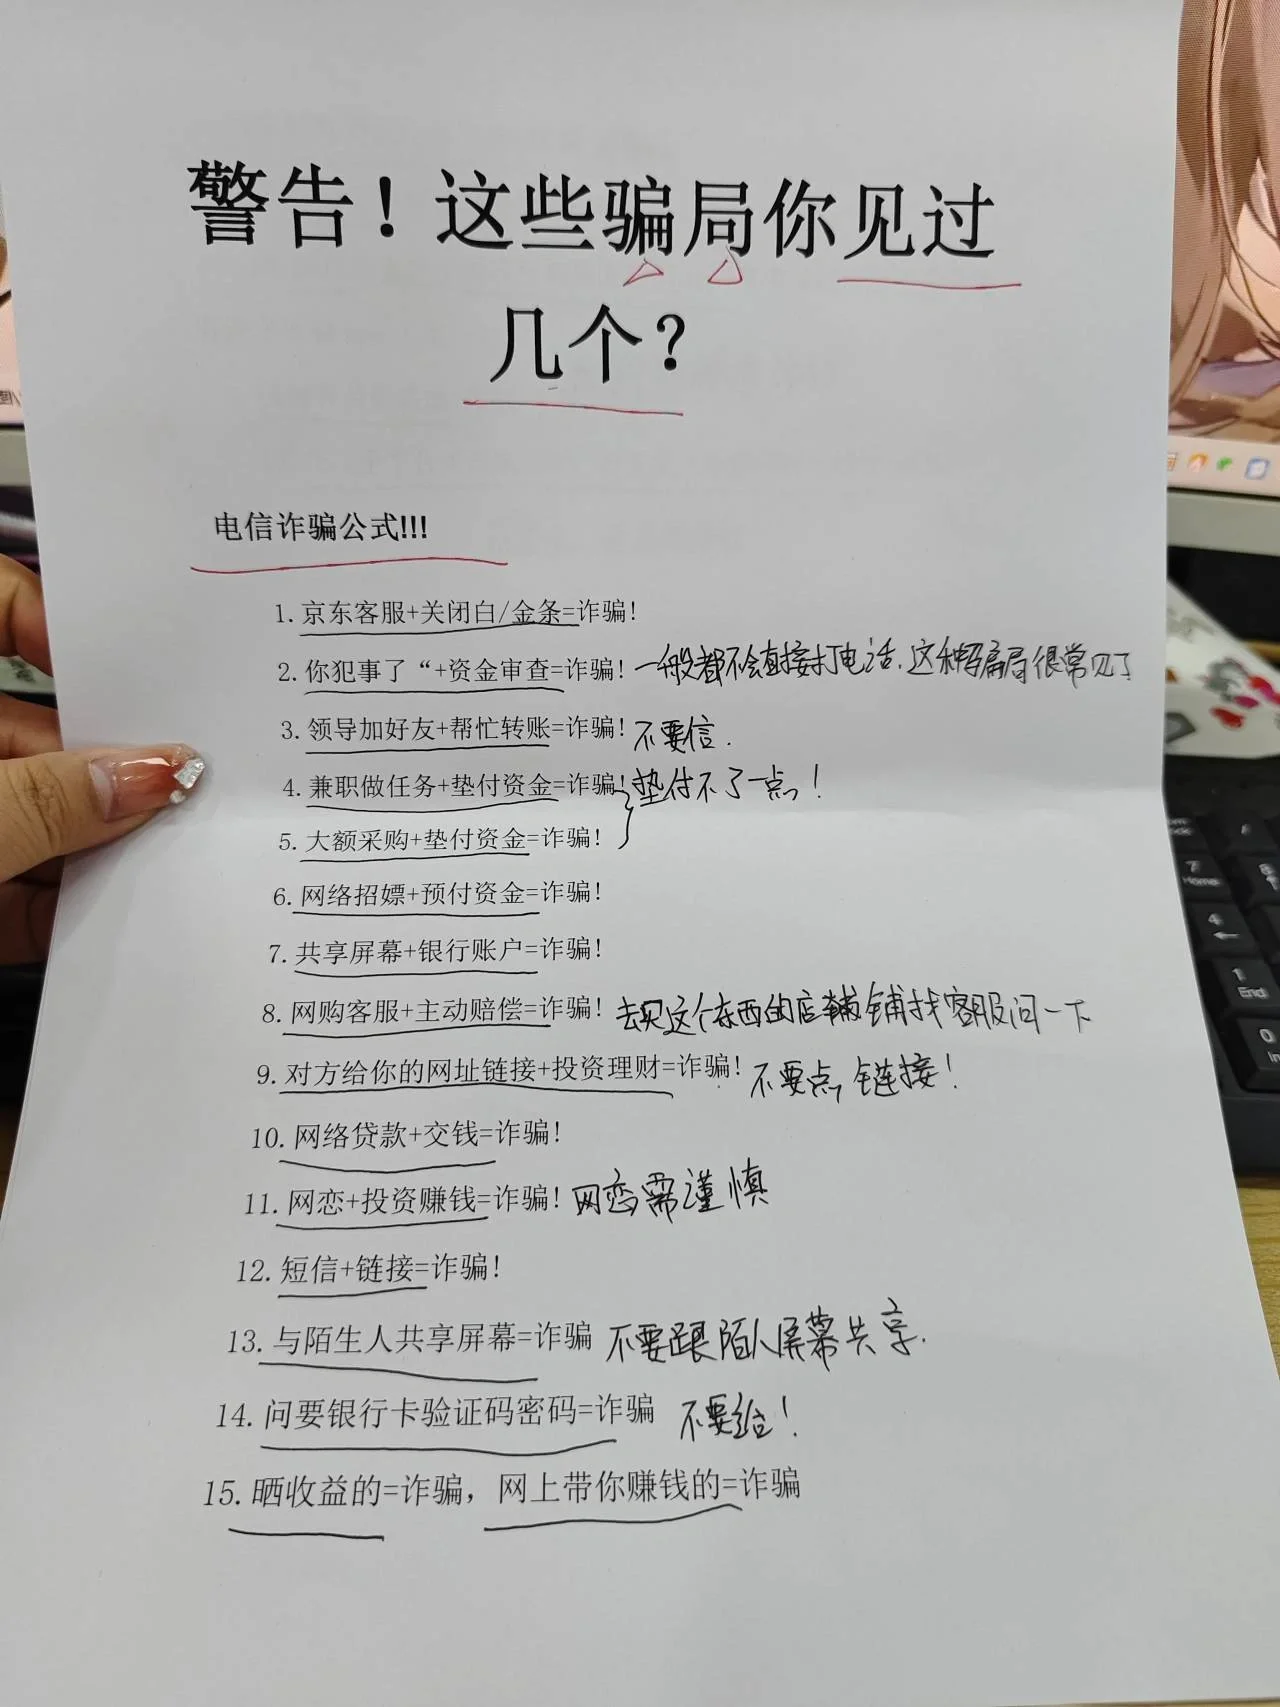 警告！这些骗局你见过
几个？
电信诈骗公式!!!
1.京东客服+关闭白/金条=诈骗!
2.你犯事了“+资金审查=诈骗! 一般都不会直接打电话.这种骗局很常见了
3.领导加好友+帮忙转账=诈骗! 不要信.
4.兼职做任务+垫付资金=诈骗! 垫付不了一点!
5.大额采购+垫付资金=诈骗!
6.网络招嫖+预付资金=诈骗!
7.共享屏幕+银行账户=诈骗!
8.网购客服+主动赔偿=诈骗! 去买这个东西的店铺找客服问一下
9.对方给你的网址链接+投资理财=诈骗! 不要点链接!
10.网络贷款+交钱=诈骗!
11.网恋+投资赚钱=诈骗! 网恋需谨慎
12.短信+链接=诈骗!
13.与陌生人共享屏幕=诈骗 不要跟陌人屏幕共享.
14.问要银行卡验证码密码=诈骗 不要给!
15.晒收益的=诈骗，网上带你赚钱的=诈骗
7
Home
4
1
End
0